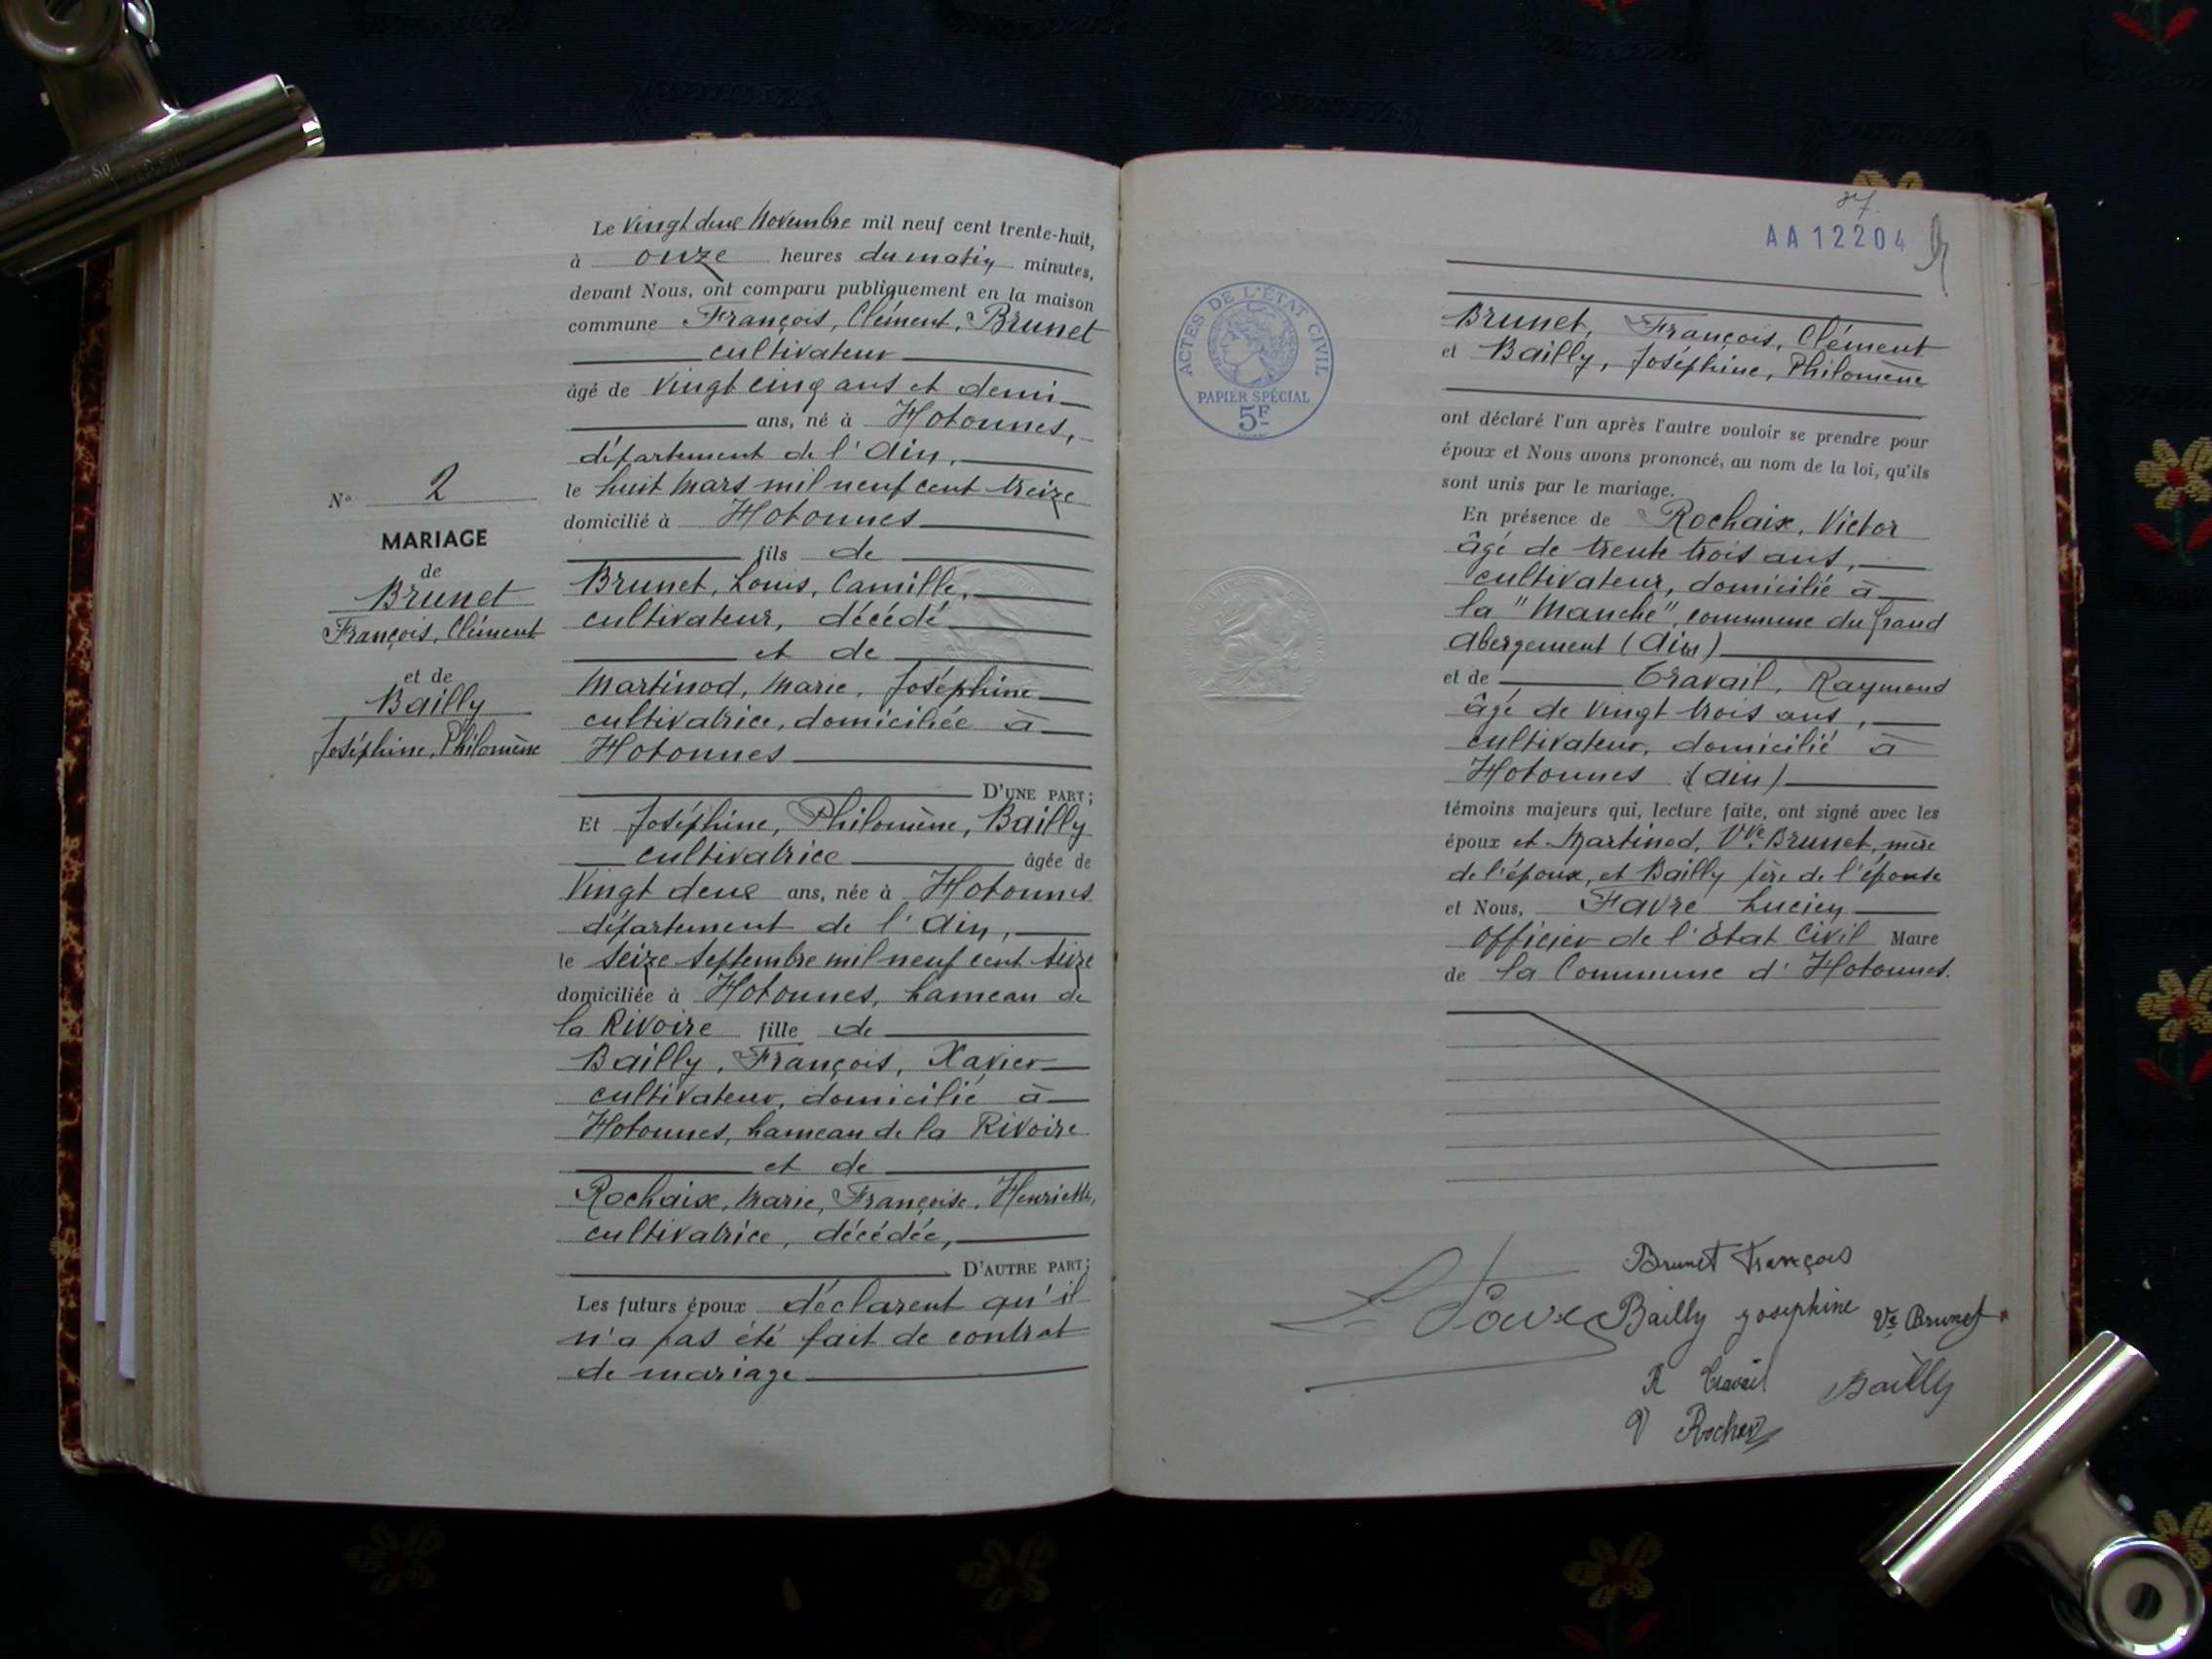 N° 2
MARIAGE
de
Brunet
François, Clément
et de
Bailly
Joséphine, Philomène
Le vingt deux Novembre mil neuf cent trente-huit,
à onze heures du matin minutes,
devant Nous, ont comparu publiquement en la maison
commune François, Clément, Brunet
cultivateur
âgé de vingt cinq ans et demi
ans, né à Hotonnes,
département de l'Ain,
le huit Mars mil neuf cent treize
domicilié à Hotonnes
fils de
Brunet, Louis, Camille,
cultivateur, décédé
et de
Martinod, Marie, Joséphine
cultivatrice, domiciliée à
Hotonnes
D'UNE PART;
Et Joséphine, Philomène, Bailly
cultivatrice âgée de
Vingt deux ans, née à Hotonnes
département de l'Ain,
le seize septembre mil neuf cent seize
domiciliée à Hotonnes, hameau de
la Rivoire fille de
Bailly, François, Xavier
cultivateur, domicilié à
Hotonnes, hameau de la Rivoire
et de
Rochaix, Marie, Françoise, Henriette,
cultivatrice, décédée,
D'AUTRE PART;
Les futurs époux déclarent qu'il
n'a pas été fait de contrat
de mariage
37.
AA12204
ACTES DE L'ÉTAT CIVIL
PAPIER SPÉCIAL
5F
Brunet, François, Clément
et Bailly, Joséphine, Philomène
ont déclaré l'un après l'autre vouloir se prendre pour
époux et Nous avons prononcé, au nom de la loi, qu'ils
sont unis par le mariage.
En présence de Rochaix, Victor
âgé de trente trois ans,
cultivateur, domicilié à
la "Manche", commune du Grand
Abergement (Ain)
et de Travail, Raymond
âgé de vingt trois ans,
cultivateur, domicilié à
Hotonnes (Ain)
témoins majeurs qui, lecture faite, ont signé avec les
époux et Martinod, Vve Brunet, mère
de l'époux, et Bailly père de l'épouse
et Nous, Favre Lucien
Officier de l'Etat Civil Maire
de la Commune d'Hotonnes.
Brunet François
L Favre Bailly Josephine Ve Brunet
R Travail Bailly
V Rochaix